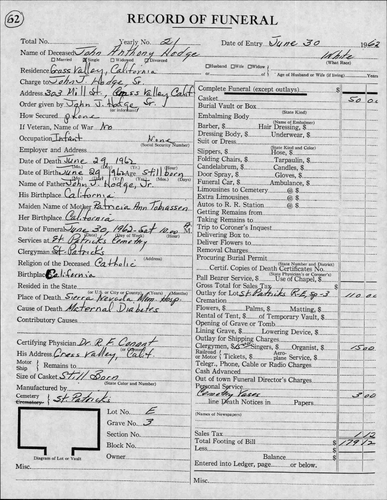 62
RECORD OF FUNERAL
Total No. Yearly No. 21 Date of Entry June 30 1962
Name of Deceased John Anthony Hodge White
(What Race)
Married Single Widowed Divorced Husband Widow Wife
Residence Grass Valley, California Age of Husband or Wife (if living) Years
Charge to John J. Hodge, Sr.
Address 303 Mill St., Grass Valley, Calif
Order given by John J. Hodge Sr.
or Informant
How Secured phone
If Veteran, Name of War No
Occupation Infant None
(Social Security Number)
Employer and Address
Date of Death June 29, 1962
Date of Birth June 29, 1962 Age Stillborn
Name of Father John J. Hodge, Sr.
His Birthplace California
Maiden Name of Mother Patricia Ann Tobiassen
Her Birthplace California
Date of Funeral June 30, 1962 - Sat 10.00
Services at St. Patricks Cemetery
Clergyman St. Patricks
Religion of the Deceased Catholic
Birthplace California
Resided in the State
(or U.S. or City or County) (Years, Months)
Place of Death Sierra Nevada Mem. Hosp.
Cause of Death Maternal Diabetes
Contributory Causes
Certifying Physician Dr. R. F. Conant
His Address Grass Valley, Calif
Motor
Ship
Remains to
Size of Casket Still Born
(State Color and Number)
Manufactured by
Cemetery
Crematory
St. Patricks
Lot No. E
Grave No. 3
Section No.
Block No.
Owner
Diagram of Lot or Vault
Misc.
Complete Funeral (except outlays) $
Casket 50.00
Burial Vault or Box
(State Kind)
Embalming Body
(Name of Embalmer)
Barber, $ Hair Dressing, $
Dressing Body, $ Underwear, $
Suit or Dress
(State Kind and Color)
Slippers, $ Hose, $
Folding Chairs, $ Tarpaulin, $
Candelabrum, $ Candles, $
Door Spray, $ Gloves, $
Funeral Car, $ Ambulance, $
Limousines to Cemetery @ $
Extra Limousines @ $
Autos to R. R. Station @ $
Getting Remains
Taking Remains
Trip to Coroner's Inquest
Delivering Box to
Deliver Flowers to
Removal Charges
Procuring Burial Permit
Certif. Copies of Death Certificates No.
(State Physician's or Coroner's)
Pall Bearer Service, $ Use of Chapel, $
Gross Total for Sales Tax $
Outlay for Lot St. Patricks 110.00
Cremation
Flowers, $ Palms, $ Matting, $
Rental of Tent, $ of Temporary Vault, $
Opening of Grave or Tomb
Lining Grave, $ Lowering Device, $
Outlay for Shipping Charges
Clergymen, $ Singers, $ Organist, $ 15.00
Railroad or Motor Tickets, $ Aeroplane Service, $
Telegr., Phone, Cable or Radio Charges
Cash Advanced
Out of town Funeral Director's Charges
Personal Service
Cemetery Vases 3.00
line Death Notices in Papers
(Names of Newspapers)
Sales Tax 1.12
Total Footing of Bill $ 179.12
Less
Balance $
Entered into Ledger, page or below.
Misc.